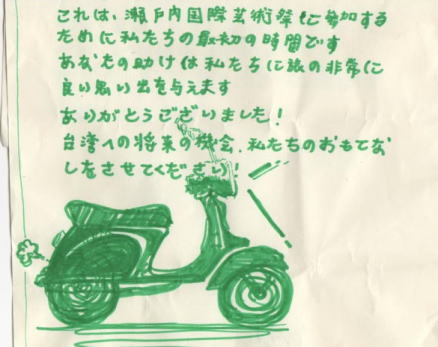 これは、瀬戸内国際芸術祭に参加する
ために私たちの最初の時間です
あなたの助けは私たちに旅の非常に
良い思い出を与えます
ありがとうございました！
台湾への将来の機会、私たちのおもてな
しをさせてください！